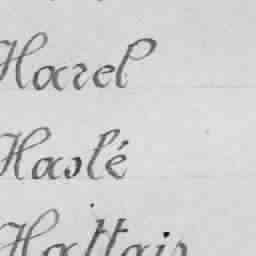 Harel
Haslé
Hattais